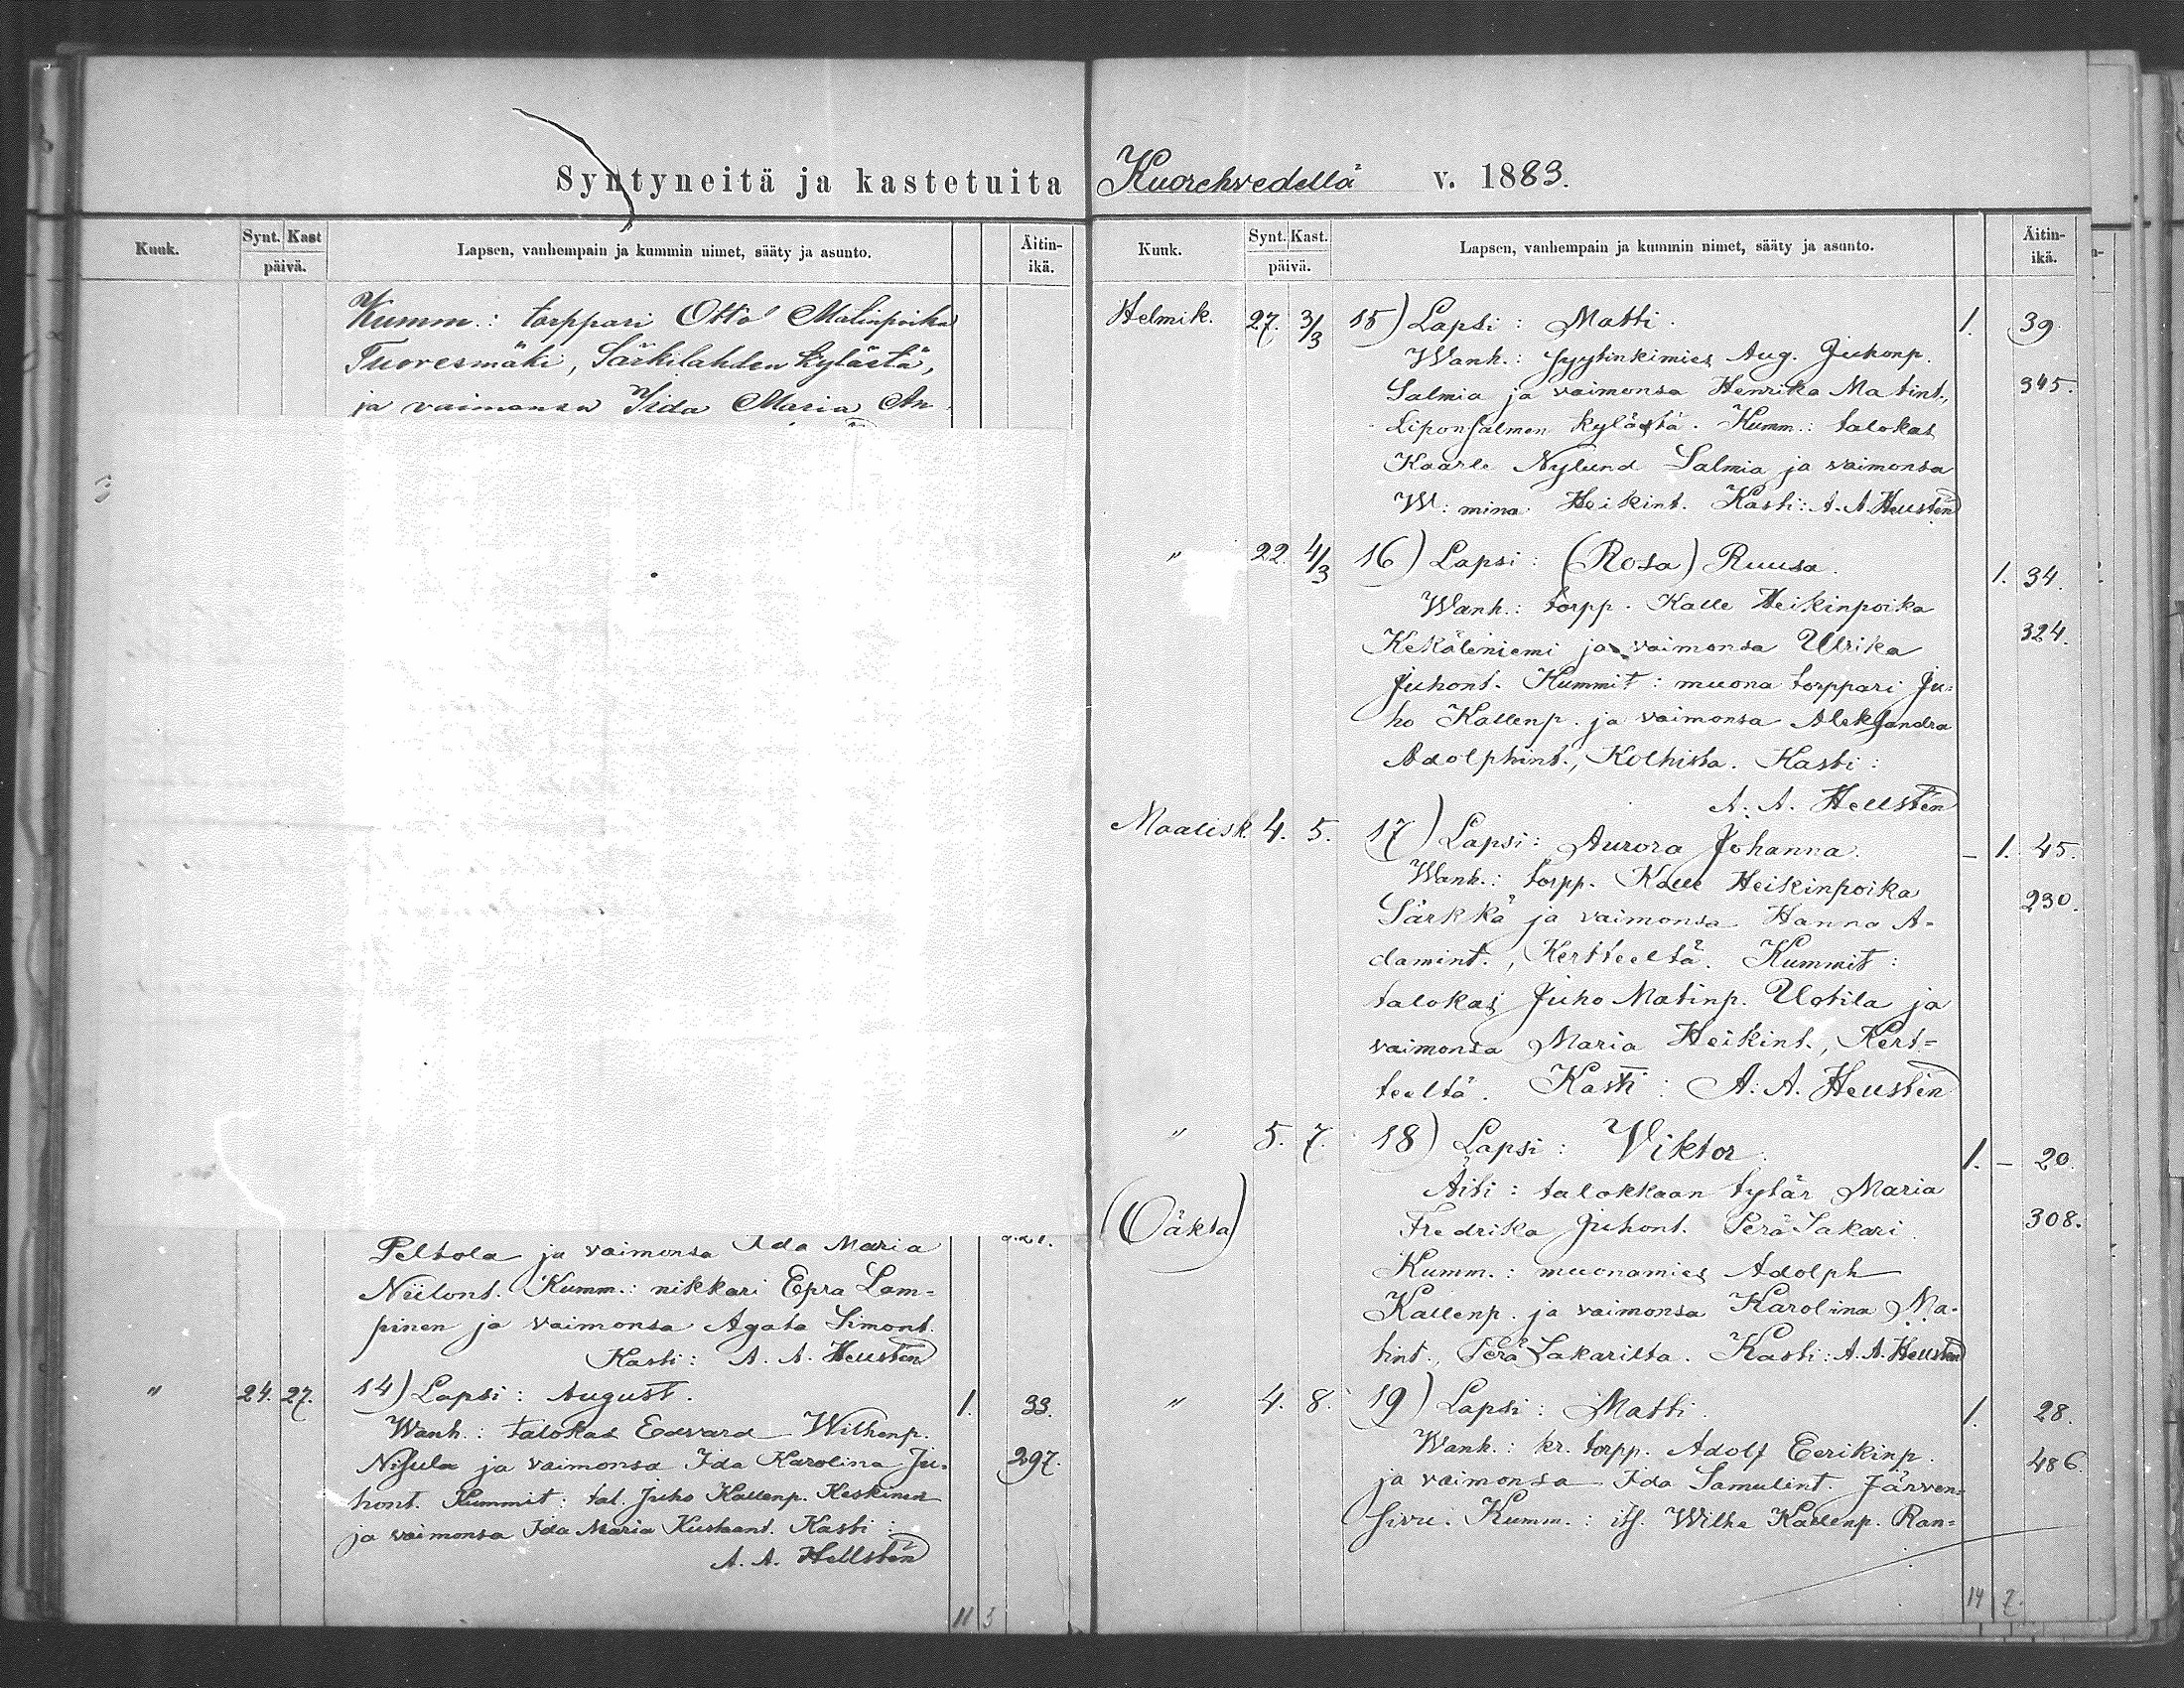 Syntyneitä ja kastetuita Kuorehvedellä v. 1883.
Kuuk. Synt. Kast päivä. Lapsen, vanhempain ja kummin nimet, sääty ja asunto. Äitin-ikä.
Kumm.: torppari Otto Matinpoika
Tuoresmäki, Särkilahden kylästä,
ja vaimonsa Iida Maria An
Peltola ja vaimonsa Ida Maria
Niilont. Kumm.: nikkari Epra Lam-
pinen ja vaimonsa Agata Simont.
Kasti: A. A. Hellstén
" 24. 27. 14) Lapsi: August. 1. 33.
Wanh.: talokas Edvard Wilhenp.
Nisula ja vaimonsa Ida Karolina Ju- 297.
hont. Kummit: tal. Juho Kallenp. Keskinen
ja vaimonsa Ida Maria Kustaant. Kasti:
A. A. Hellstén
11 5
Kuuk. Synt. Kast. päivä. Lapsen, vanhempain ja kummin nimet, sääty ja asunto. Äitin-ikä.
Helmik. 27. 3/3 15) Lapsi: Matti. 1. 39
Wanh.: syytinkimies Aug. Juhonp.
Salmia ja vaimonsa Henrika Matint., 345.
Liponsalmen kylästä. Kumm.: talokas
Kaarle Nylund Salmia ja vaimonsa
W:mina Heikint. Kasti: A. A. Hellstén
" 22. 4/3 16) Lapsi: (Rosa) Ruusa. 1. 34.
Wanh.: torpp. Kalle Heikinpoika
Kekäleniemi ja vaimonsa Ulrika 324.
Juhont. Kummit: muona torppari Ju-
ho Kallenp. ja vaimonsa Aleksandra
Adolphint., Kolhista. Kasti:
A. A. Hellstén
Maalisk. 4. 5. 17) Lapsi: Aurora Johanna. - 1. 45.
Wanh.: torpp. Kalle Heikinpoika
Särkkä ja vaimonsa Hanna A- 230.
damint., Kertteeltä. Kummit:
talokas Juho Matinp. Uotila ja
vaimonsa Maria Heikint., Kert-
teeltä. Kasti: A. A. Hellstén
" 5. 7. 18) Lapsi: Viktor. 1. - 20.
Äiti: talokkaan tytär Maria
(Oäkta) Fredrika Juhont. Perä Sakari. 308.
Kumm.: muonamies Adolph
Kallenp. ja vaimonsa Karolina Ma-
tint., Perä Sakarilta. Kasti: A. A. Hellstén
" 4. 8. 19) Lapsi: Matti. 1. 28.
Wanh.: kr. torpp. Adolf Eerikinp. 486.
ja vaimonsa Ida Samulint. Järven-
sivu. Kumm.: its. Wilhe Kallenp. Ran-
14 7.